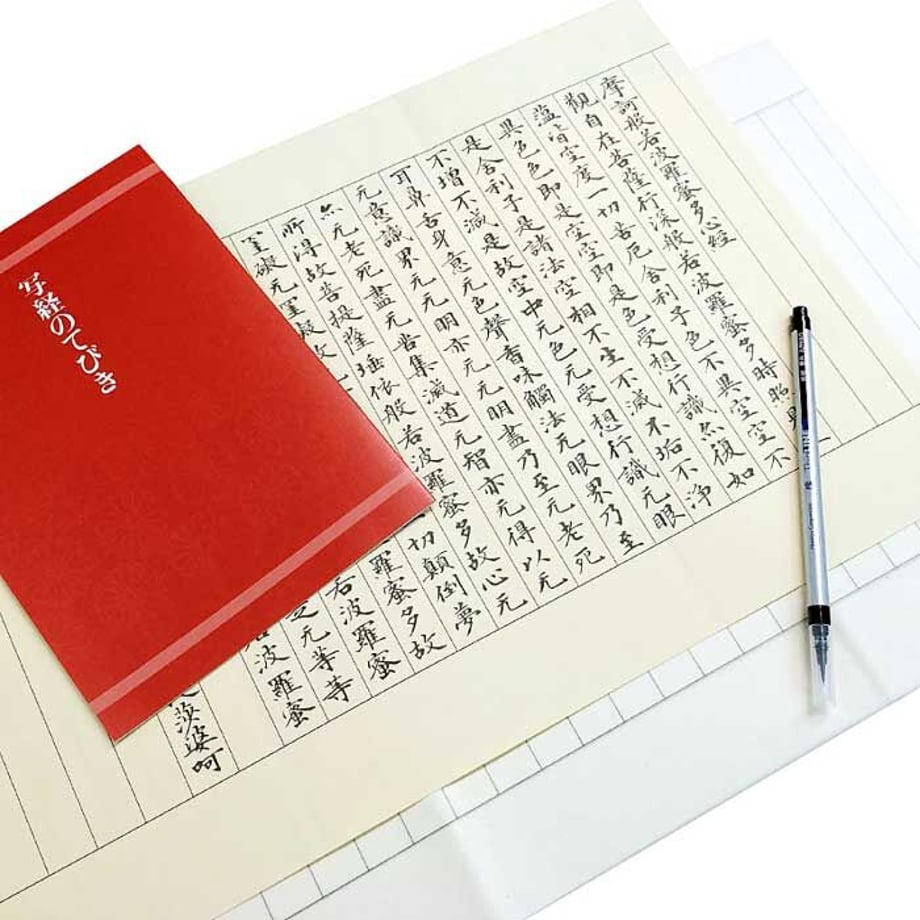 摩訶般若波羅蜜多心經
觀自在菩薩行深般若波羅蜜多時照
蘊皆空度一切苦厄舍利子色不異空空不
異色色即是空空即是色受想行識亦復如
是舍利子是諸法空相不生不滅不垢不淨
不增不減是故空中无色无受想行識无眼
耳鼻舌身意无色聲香味觸法无眼界乃至
无意識界无无明亦无无明盡乃至无老死
亦无老死盡无苦集滅道无智亦无得以无
所得故菩提薩埵依般若波羅蜜多故心无
罣礙无罣礙故 切顛倒夢
羅蜜多故
若波羅蜜
无等等
波羅蜜
莎婆呵
写経のてびき